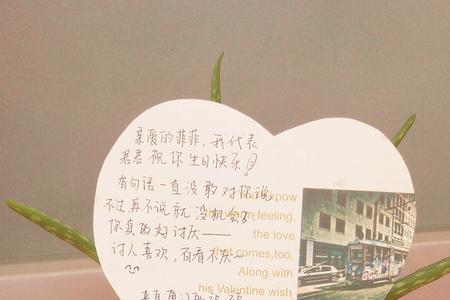 亲爱的菲菲，我代表
君君祝你生日快乐
有句话一直没敢对你说，
不过再不说就没机会了
你真的好讨厌——
讨人喜欢，百看不厌——
know
feeling,
the love
that comes,too,
Along with
his Valentine wish